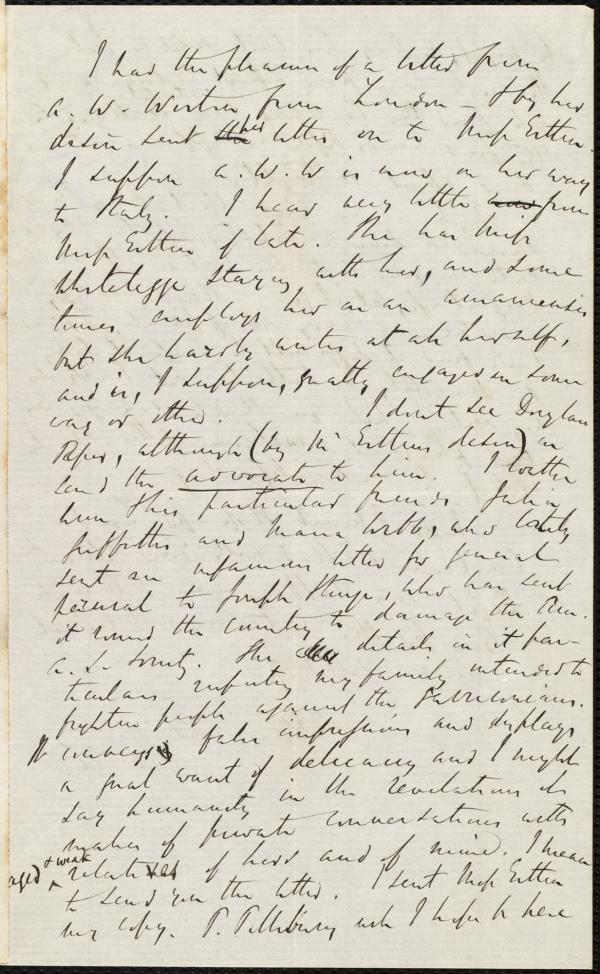 I had the pleasure of a letter from
A. W. Weston from London – I by her
desire sent her letter on to Miss Estlin.
I suppose A. W. W is now on her way
to Italy. I hear very little from
Miss Estlin of late. She has Miss
Whitelegge staying with her, and some
times employs her as an amanuensis
but she hardly writes at all herself,
and is, I suppose, greatly engaged in some
way or other. I don't see Douglass
Paper, although (by Mr Estlins desire) we
send the Advocate to him. I
him & his particular friends Julia
Griffiths and Maria Webb, who lately
sent an infamous letter for general
perusal to Joseph Sturge, who has sent
it round the country to damage the Am.
A. S. Society. She details in it par-
ticulars respecting my family intended to
frighten people against the Garrisonians.
It conveys false impressions and displays
a great want of delicacy and I might
say humanity in the revelations it
makes of private conversations with
aged & weak relatives of hers and of mine. I mean
to send you the letter. I sent Miss Estlin
my copy. P. Pillsbury will I hope be here